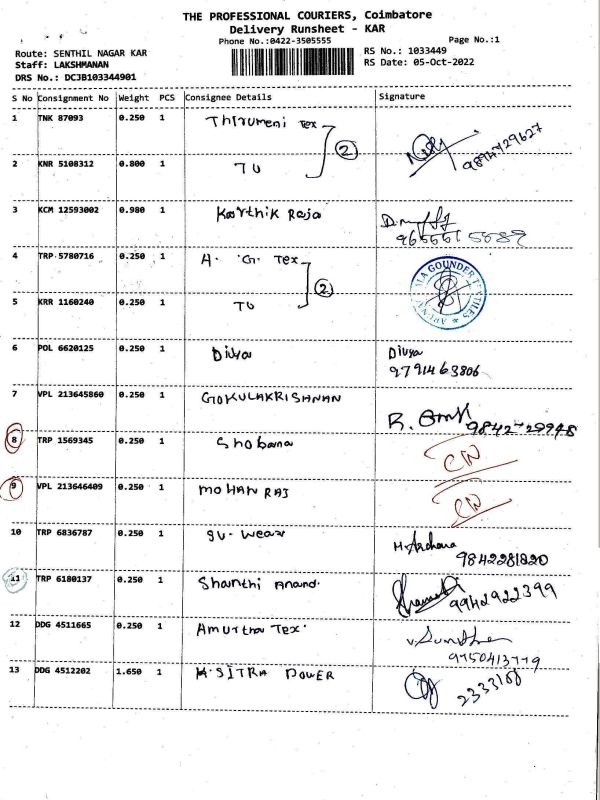 THE PROFESSIONAL COURIERS, Coimbatore
Delivery Runsheet - KAR
Phone No.:0422-3505555
Page No.:1
Route: SENTHIL NAGAR KAR
Staff: LAKSHMANAN
DRS No.: DCJB103344901
RS No.: 1033449
RS Date: 05-Oct-2022
S No Consignment No Weight PCS Consignee Details Signature
1 TNK 87093 0.250 1 Thirumeni Tex 2 9894729627
2 KNR 5108312 0.800 1 TU
3 KCM 12593002 0.980 1 Karthik Raja
4 TRP 5780716 0.250 1 A. G. Tex 2
5 KRR 1160240 0.250 1 TU
6 POL 6620125 0.250 1 Divya Divya
9791463806
7 VPL 213645860 0.250 1 GOKULAKRISHNAN
8 TRP 1569345 0.250 1 Shobana CN
9 VPL 213646409 0.250 1 MOHAN RAJ CN
10 TRP 6836787 0.250 1 gv. wear
9842281820
11 TRP 6180137 0.250 1 Shanthi Anand. 9942922399
12 DDG 4511665 0.250 1 Amurtha Tex.
9750413779
13 DDG 4512202 1.650 1 POWER